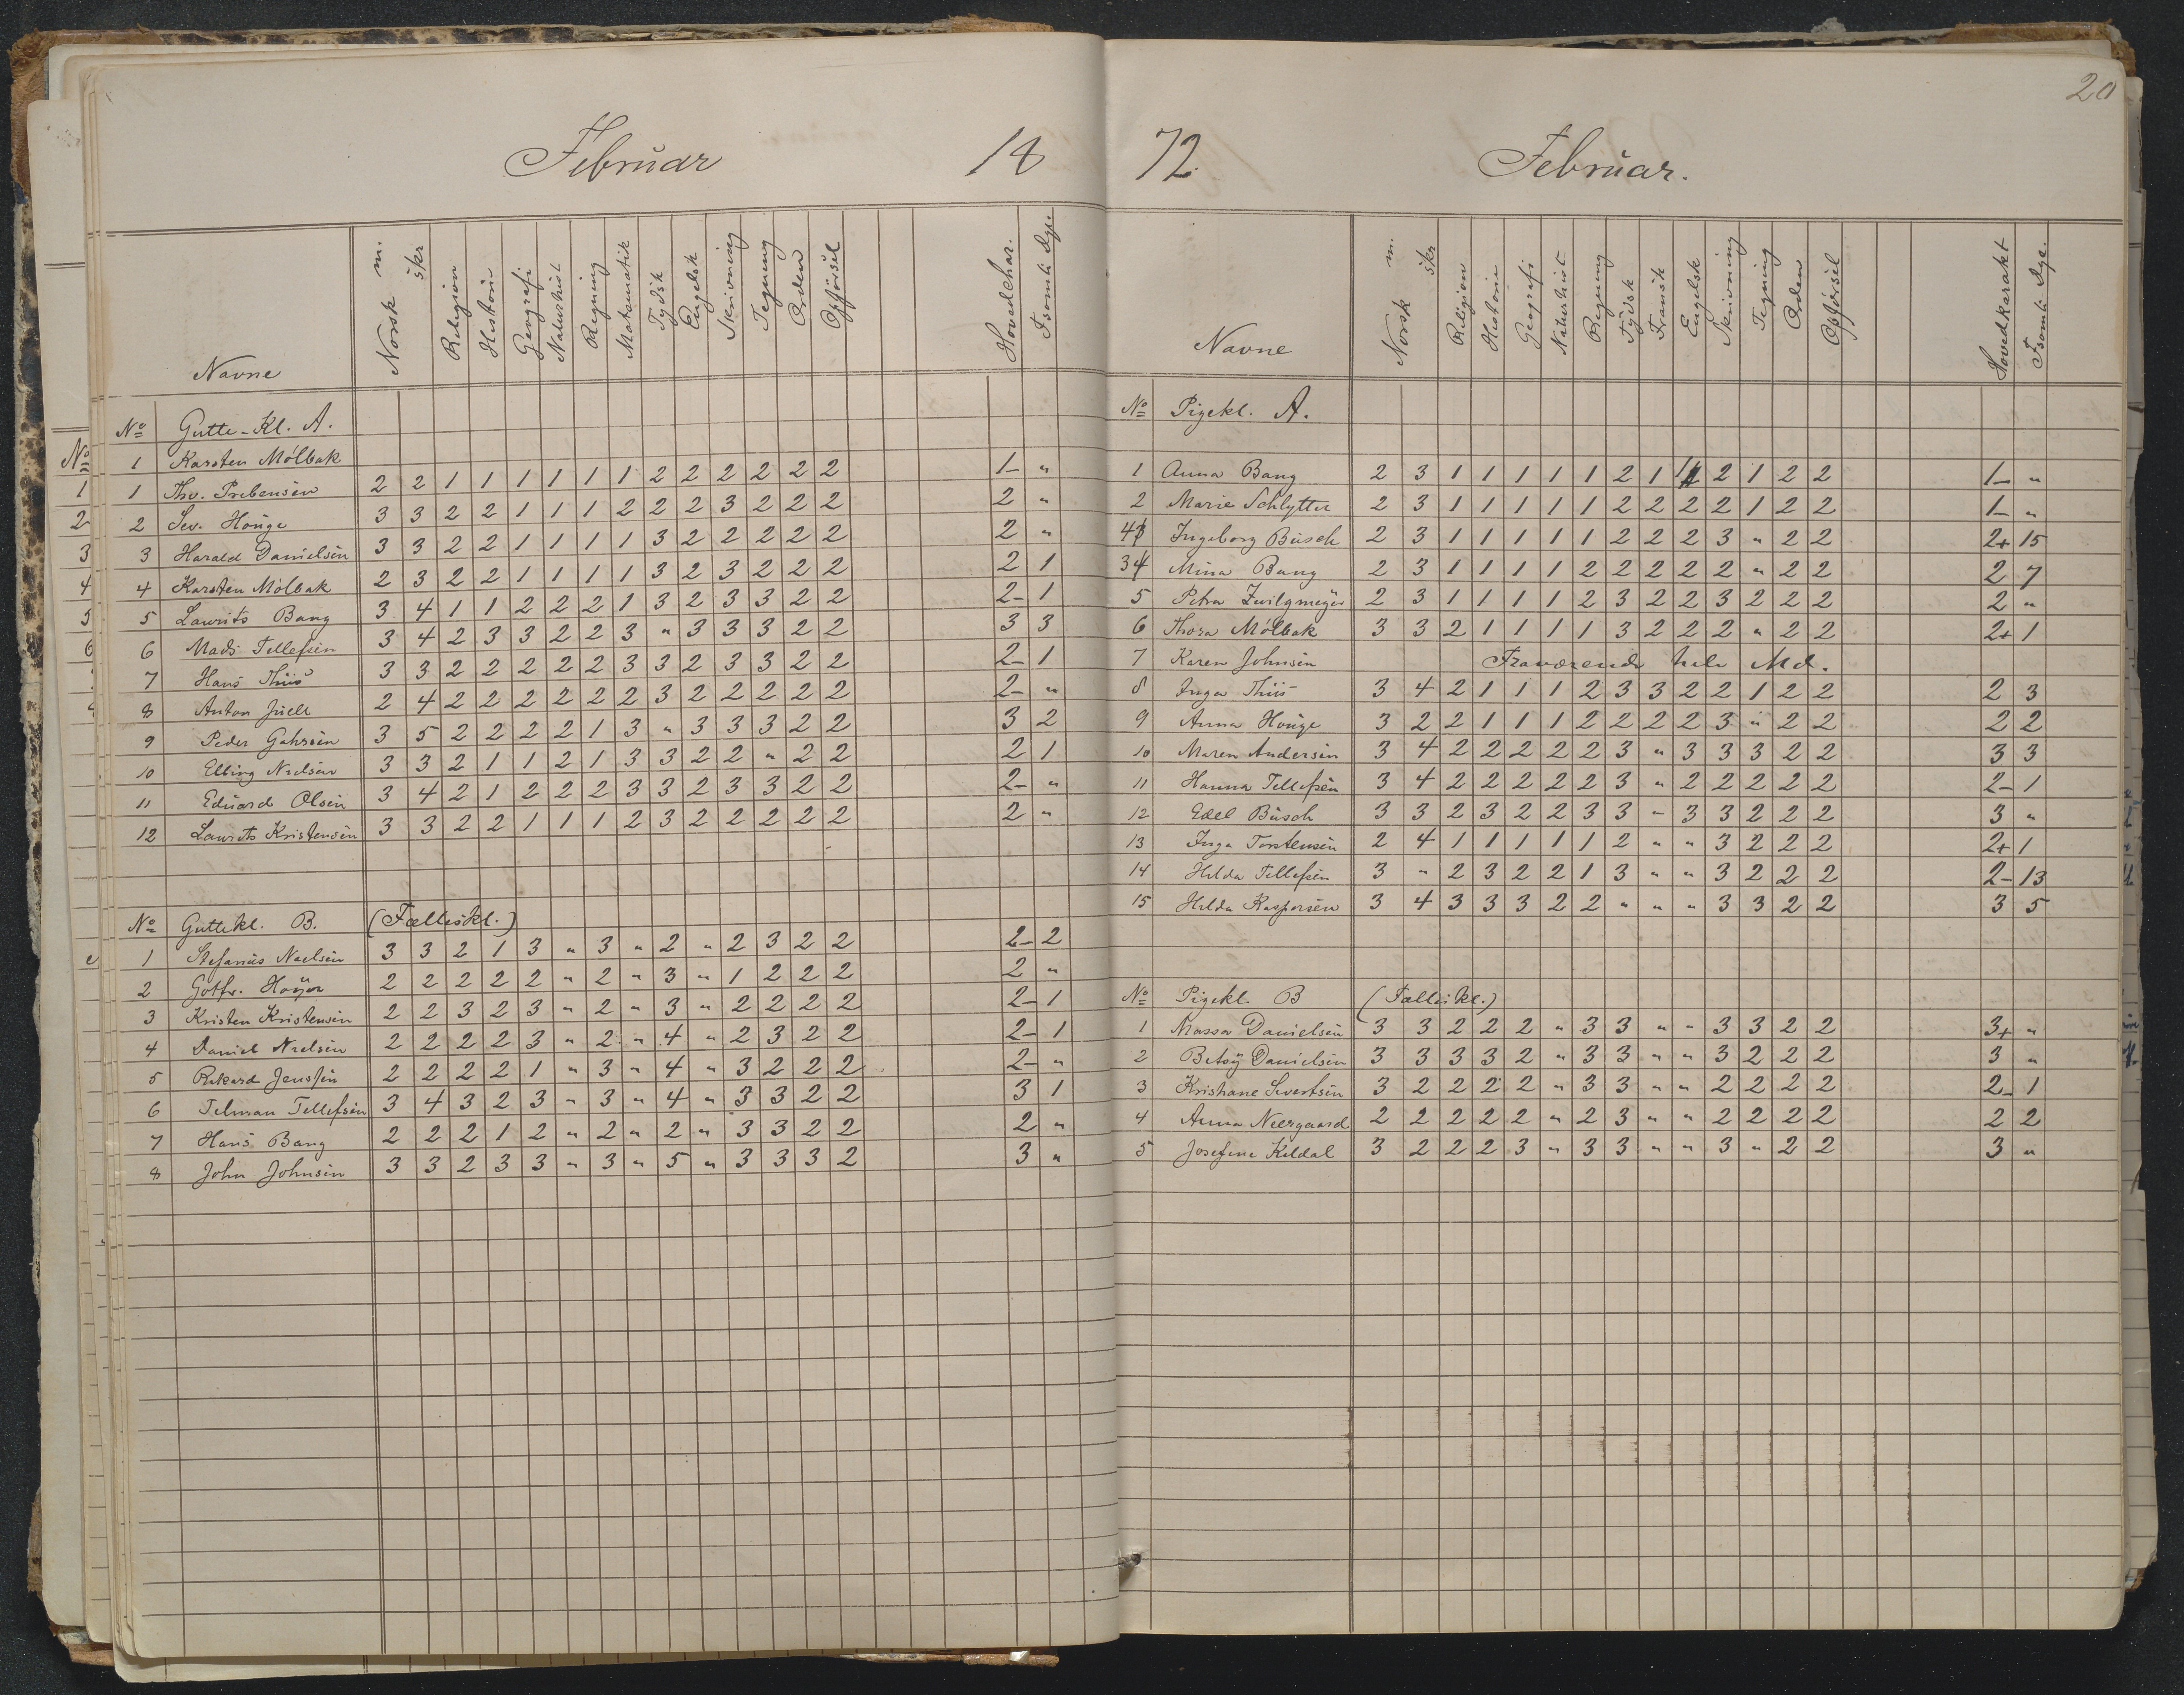 Februar 18
Navne Norsk m. skr Religion Historie Geografi Naturhist Regning Mathematik Tydsk Engelsk Skrivning Tegning Orden Opførsel Hovedchar. Fsomh. Dge.
No Gutte-Kl. A.
1 Karsten Mölbak
1 Thv. Prebensen 2 2 1 1 1 1 1 1 2 2 2 2 2 2 1- "
2 Sev. Houge 3 3 2 2 1 1 1 2 2 2 3 2 2 2 2 "
3 Harald Danielsen 3 3 2 2 1 1 1 1 3 2 2 2 2 2 2 "
4 Karsten Mölbak 2 3 2 2 1 1 1 1 3 2 3 2 2 2 2 1
5 Laurits Bang 3 4 1 1 2 2 2 1 3 2 3 3 2 2 2- 1
6 Mads Tellefsen 3 4 2 3 3 2 2 3 " 3 3 3 2 2 3 3
7 Hans Thiis 3 3 2 2 2 2 2 3 3 2 3 3 2 2 2- 1
8 Anton Juell 2 4 2 2 2 2 2 2 3 2 2 2 2 2 2- "
9 Peder Gahrsen 3 5 2 2 2 2 1 3 " 3 3 3 2 2 3 2
10 Elling Nielsen 3 3 2 1 1 2 1 3 3 2 2 " 2 2 2 1
11 Eduard Olsen 3 4 2 1 2 2 2 3 3 2 3 3 2 2 2- "
12 Laurits Kristensen 3 3 2 2 1 1 1 2 3 2 2 2 2 2 2 "
No Guttekl. B. (Fælleskl.)
1 Stefanus Naelsen 3 3 2 1 3 " 3 " 2 " 2 3 2 2 2- 2
2 Gotfr. Høyer 2 2 2 2 2 " 2 " 3 " 1 2 2 2 2 "
3 Kristen Kristensen 2 2 3 2 3 " 2 " 3 " 2 2 2 2 2- 1
4 Daniel Nielsen 2 2 2 2 3 " 2 " 4 " 2 3 2 2 2- 1
5 Rikard Jenssen 2 2 2 2 1 " 3 " 4 " 3 2 2 2 2- "
6 Telman Tellefsen 3 4 3 2 3 " 3 " 4 " 3 3 2 2 3 1
7 Hans Bang 2 2 2 1 2 " 2 " 2 " 3 3 2 2 2 "
8 John Johnsen 3 3 2 3 3 " 3 " 5 " 3 3 3 2 3 "
20
72. Februar.
Navne Norsk m. skr Religion Historie Geografi Naturhist Regning Tydsk Fransk Engelsk Skrivning Tegning Orden Opførsel Hovedkarakt Fsomh. Dge.
No Pigekl. A.
1 Anna Bang 2 3 1 1 1 1 1 2 1 1 2 1 2 2 1- "
2 Marie Schlytter 2 3 1 1 1 1 1 2 2 2 2 1 2 2 1- "
4 Ingeborg Busch 2 3 1 1 1 1 1 2 2 2 3 " 2 2 2+ 15
3 Mina Bang 2 3 1 1 1 1 2 2 2 2 2 " 2 2 2 7
5 Petra Zwilgmeyer 2 3 1 1 1 1 2 3 2 2 3 2 2 2 2 "
6 Thora Mölbak 3 3 2 1 1 1 1 3 2 2 2 " 2 2 2+ 1
7 Karen Johnsen Fraværende hele Md.
8 Inga Thiis 3 4 2 1 1 1 2 3 3 2 2 1 2 2 2 3
9 Anna Houge 3 2 2 1 1 1 2 2 2 2 3 " 2 2 2 2
10 Maren Andersen 3 4 2 2 2 2 2 3 " 3 3 3 2 2 3 3
11 Hanna Tellefsen 3 4 2 2 2 2 2 3 " 2 2 2 2 2 2- 1
12 Edel Busch 3 3 2 3 2 2 3 3 - 3 3 2 2 2 3 "
13 Inga Torstensen 2 4 1 1 1 1 1 2 " " 3 2 2 2 2+ 1
14 Hilda Tellefsen 3 " 2 3 2 2 1 3 " " 3 2 2 2 2- 13
15 Hilda Kaspersen 3 4 3 3 3 2 2 " " " 3 3 2 2 3 5
No Pigekl. B (Fælleskl.)
1 Massa Danielsen 3 3 2 2 2 " 3 3 " " 3 3 2 2 3+ "
2 Betsy Danielsen 3 3 3 3 2 " 3 3 " " 3 2 2 2 3 "
3 Kristiane Sivertsen 3 2 2 2 2 " 3 3 " " 2 2 2 2 2- 1
4 Anna Neergaard 2 2 2 2 2 " 2 3 " " 2 2 2 2 2 2
5 Josefine Kildal 3 2 2 2 3 " 3 3 " " 3 " 2 2 3 "